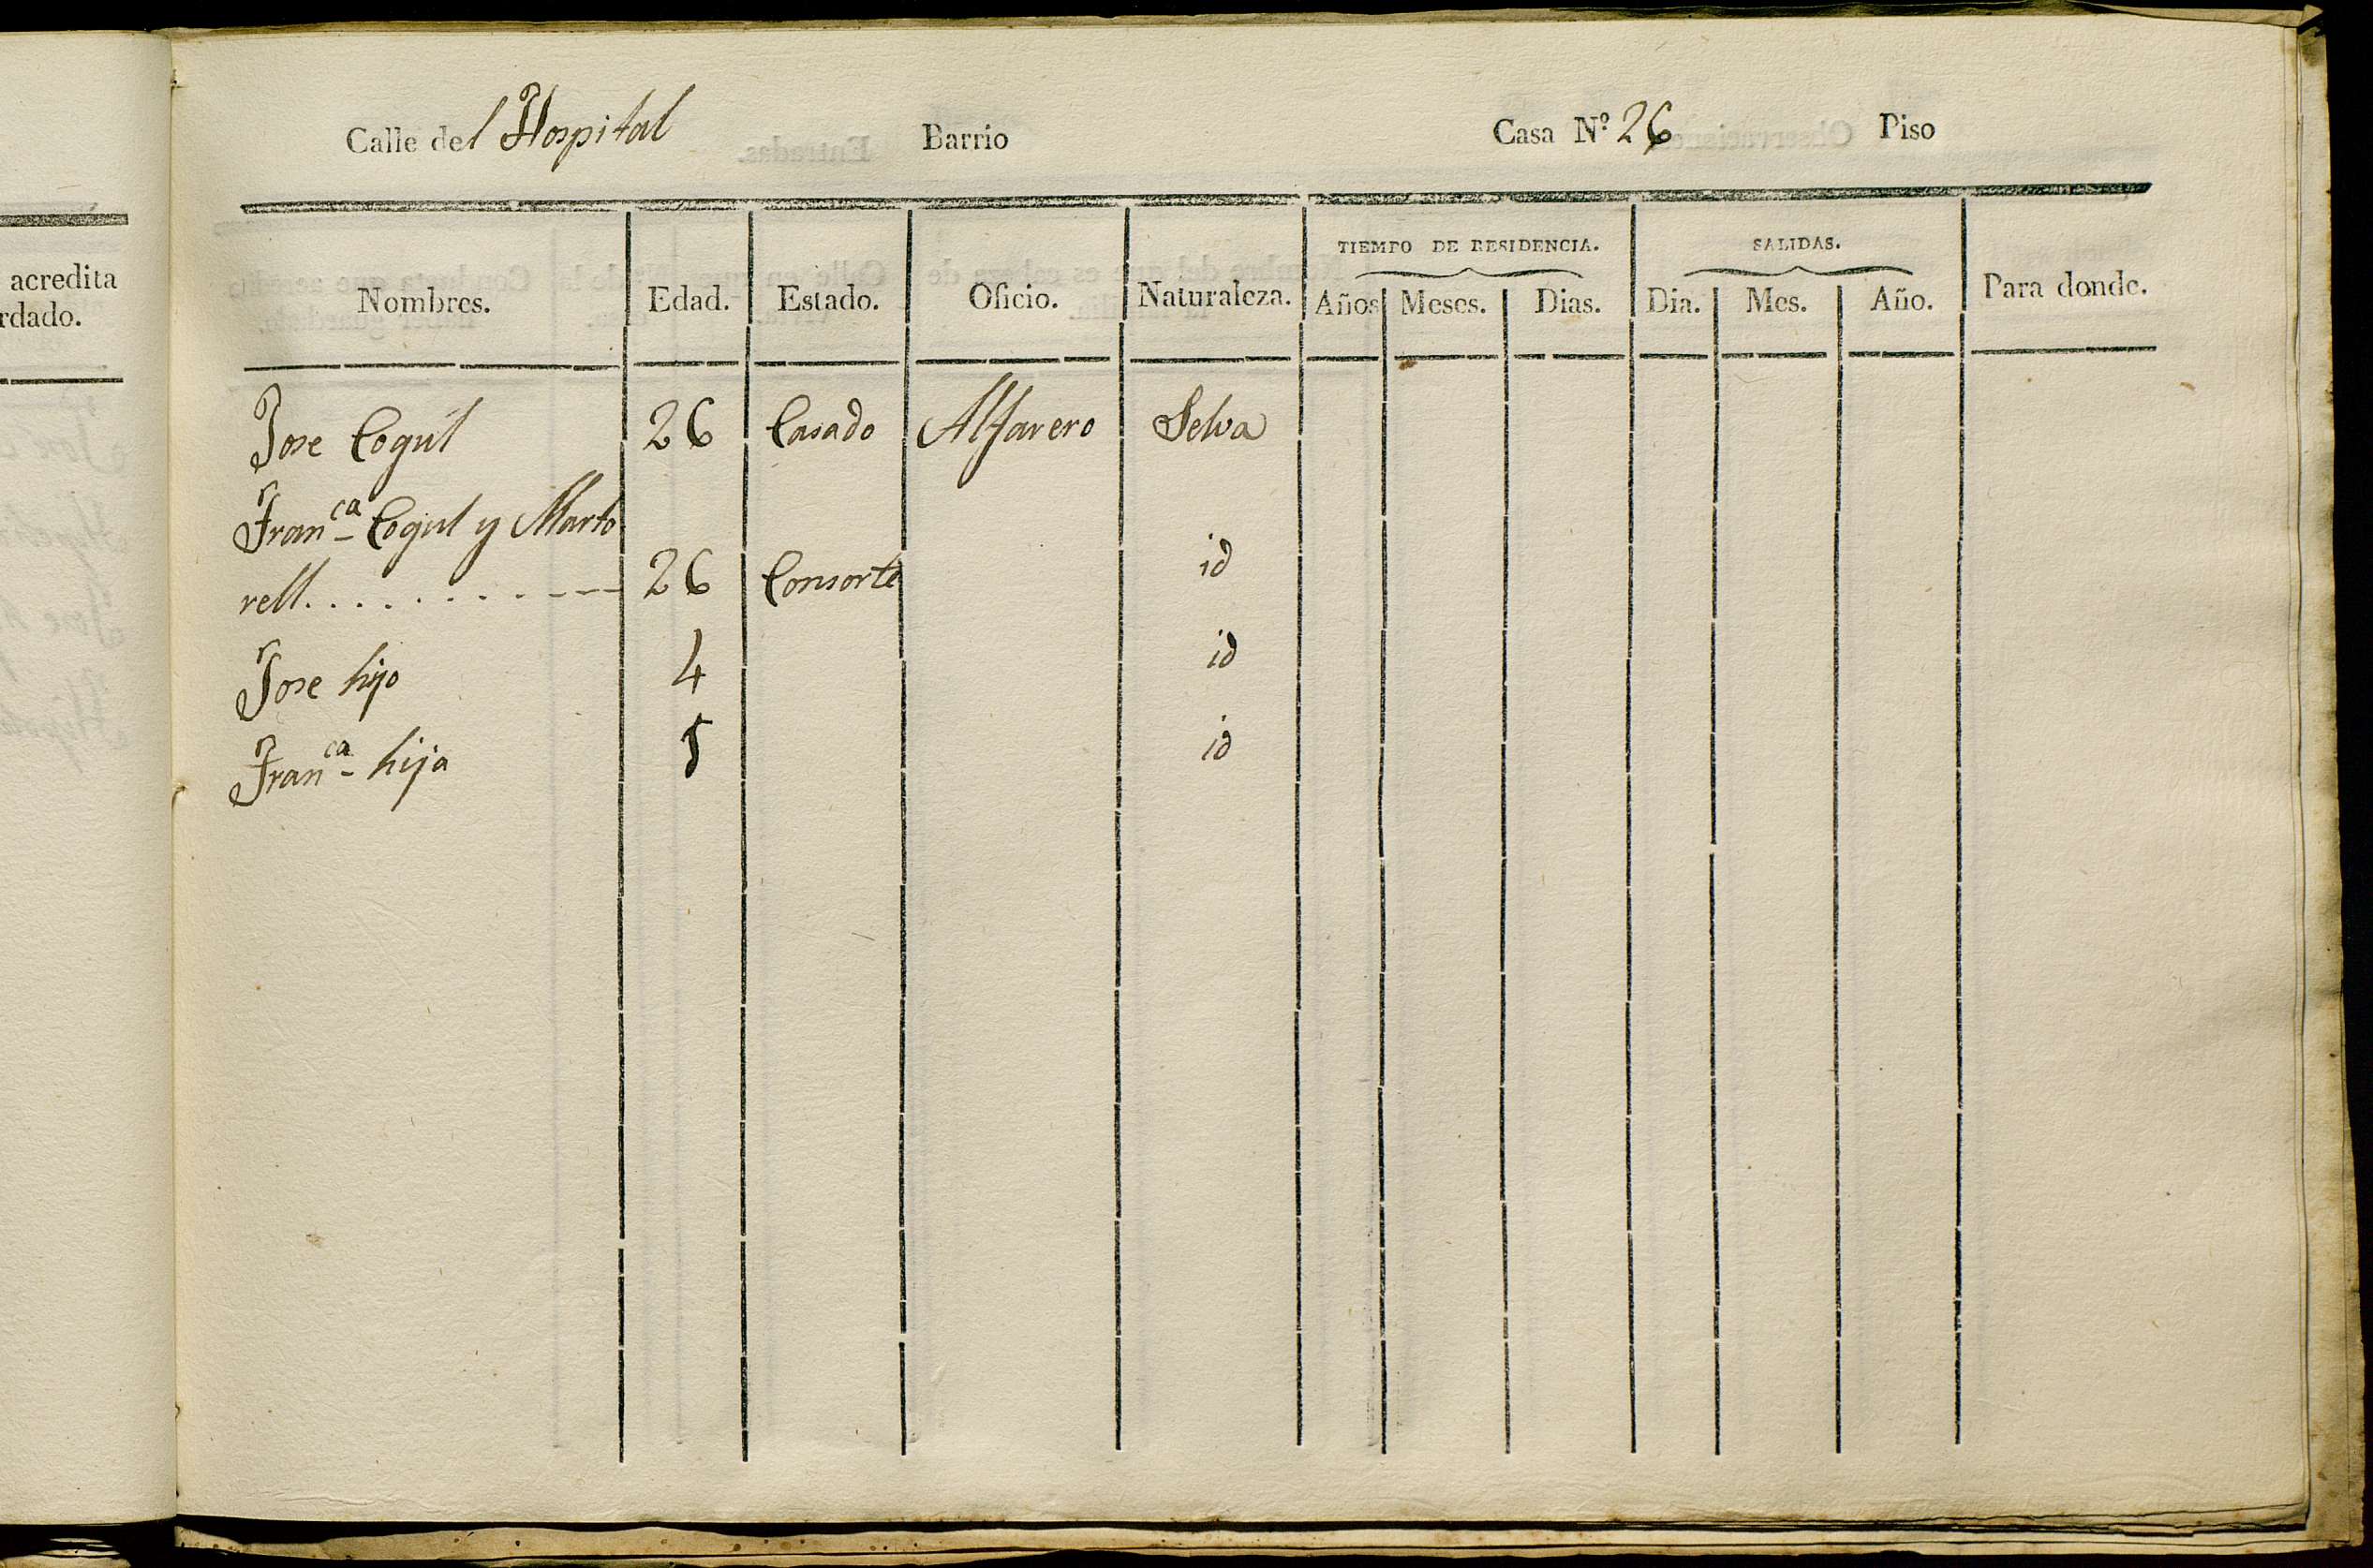 acredita
rdado.
Calle del Hospital Barrio Casa Nº 26 Piso
TIEMPO DE RESIDENCIA. SALIDAS.
Nombres. Edad. Estado. Oficio. Naturaleza. Años Meses. Dias. Dia. Mes. Año. Para donde.
Jose Cogul 26 Casado Alfarero Selva
Fran^ca Cogul y Marto
rell. . . . . . . . . --- 26 Consorte id
Jose hijo 4 id
Fran^ca hija 5 id